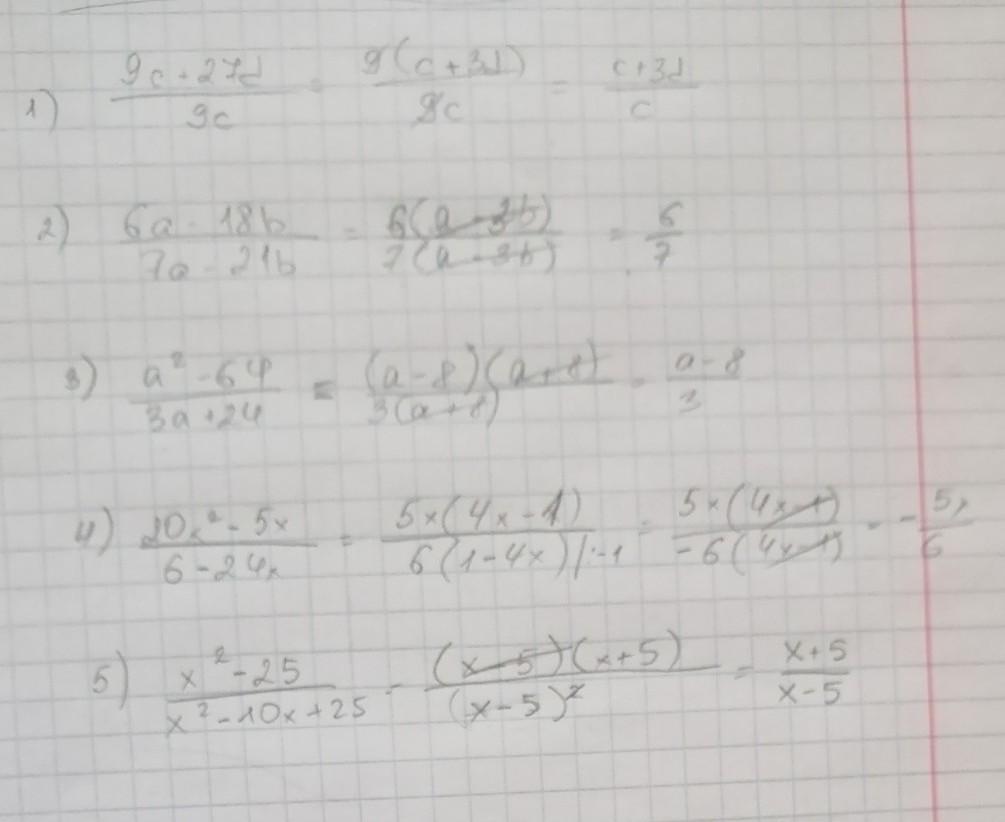 1) (9c+27d)/(9c) = (9(c+3d))/(9c) = (c+3d)/c
2) (6a-18b)/(7a-21b) = (6(a-3b))/(7(a-3b)) = 6/7
3) (a²-64)/(3a+24) = ((a-8)(a+8))/(3(a+8)) = (a-8)/3
4) (20x²-5x)/(6-24x) = (5x(4x-1))/(6(1-4x)|:-1) = (5x(4x-1))/(-6(4x-1)) = -5x/6
5) (x²-25)/(x²-10x+25) = ((x-5)(x+5))/((x-5)²) = (x+5)/(x-5)